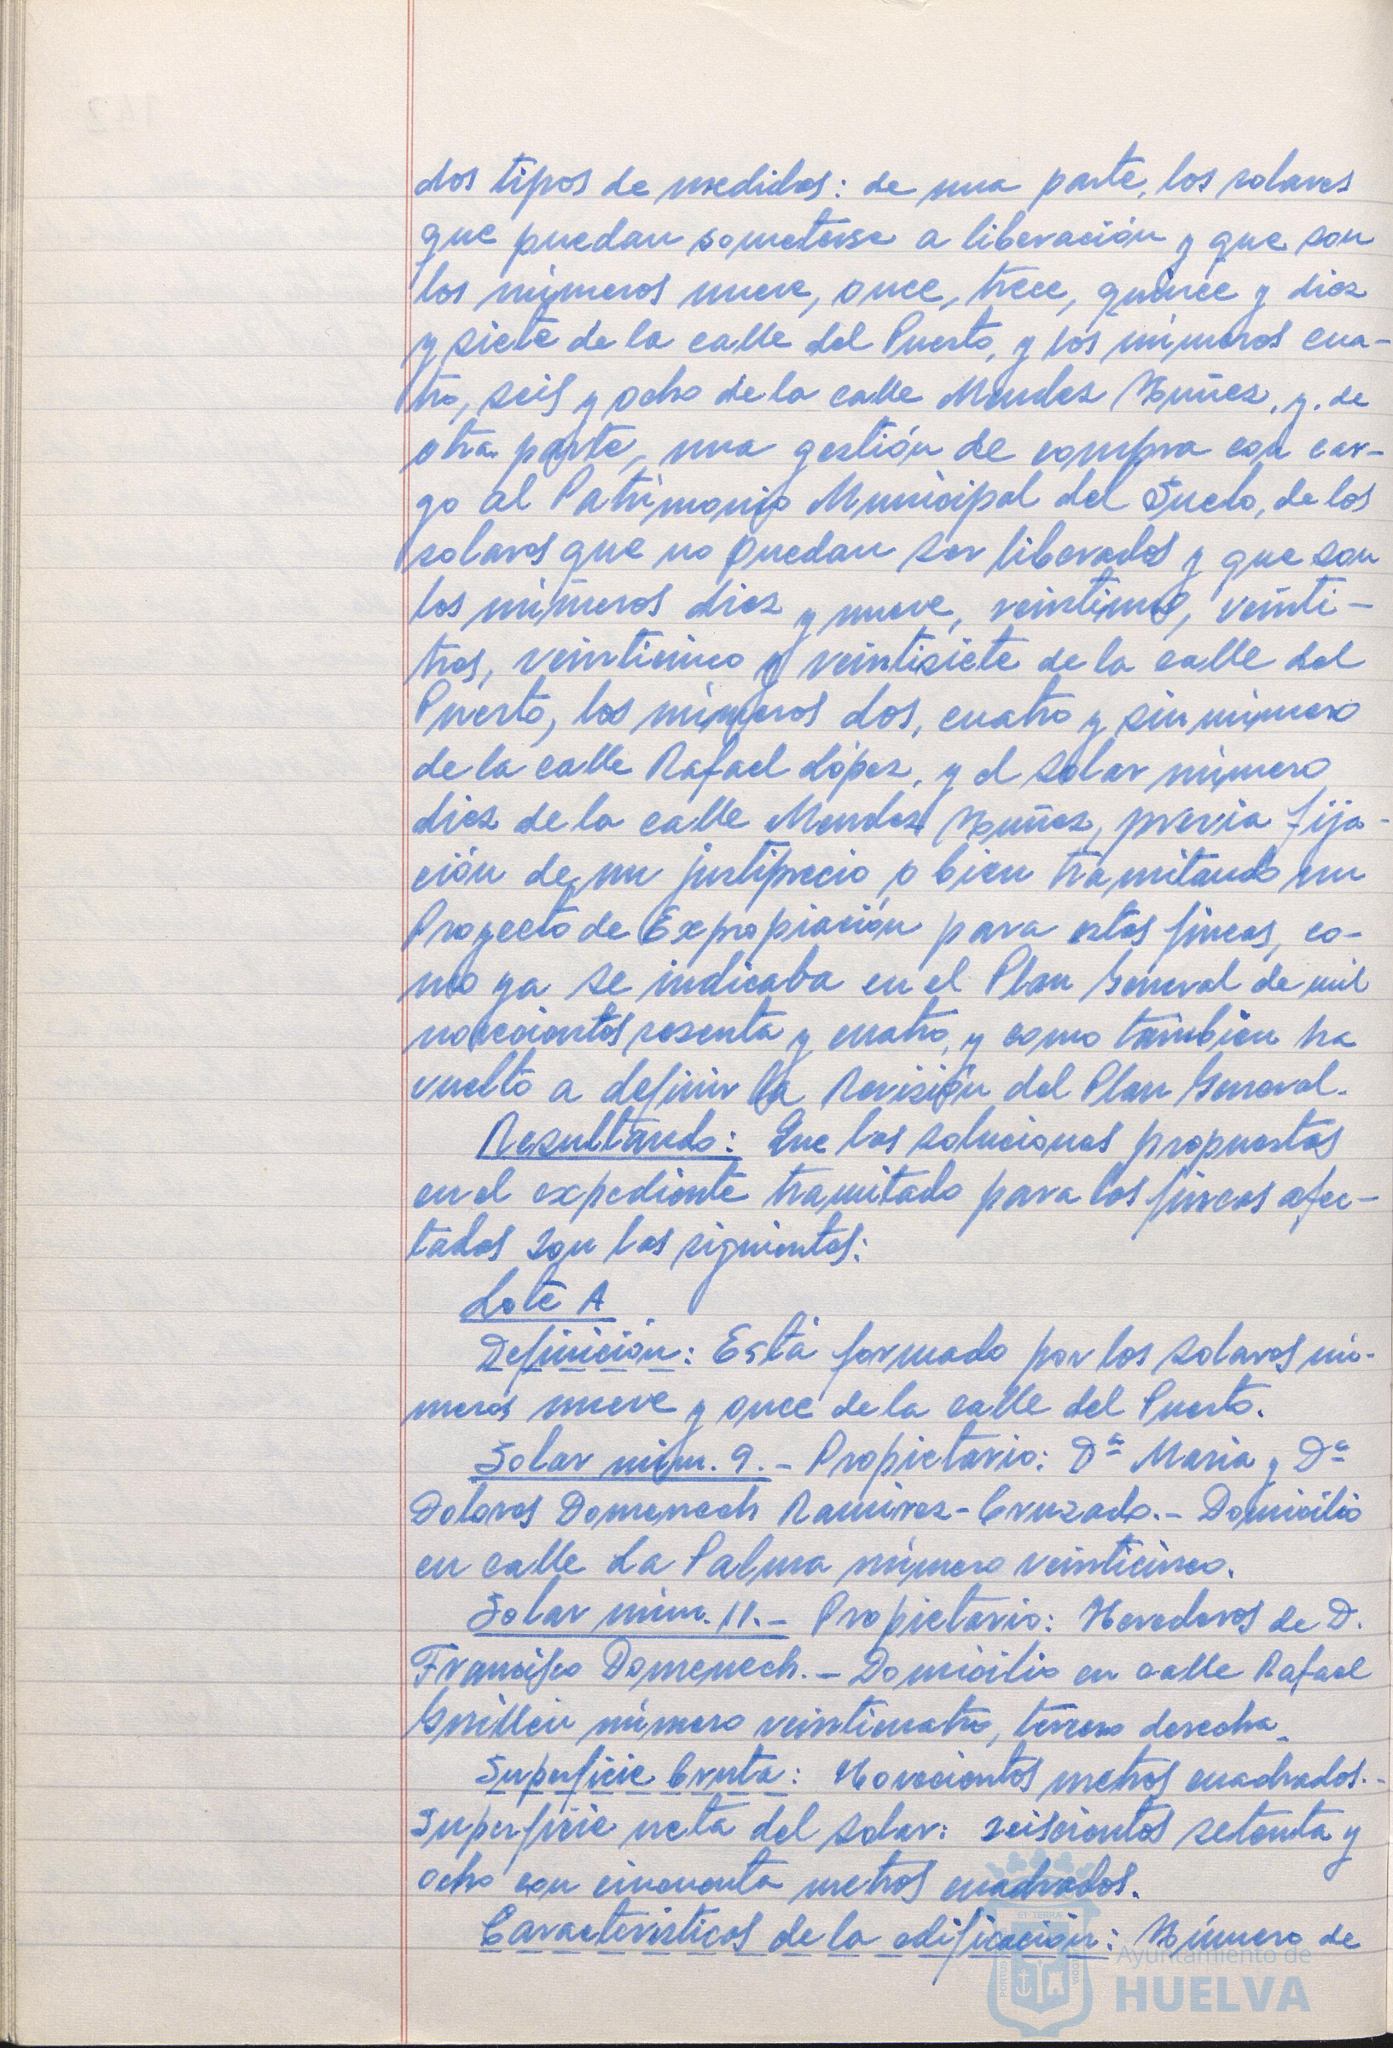 dos tipos de medidas: de una parte, los solares
que puedan someterse a liberación y que son
los números nueve, once, trece, quince y diez
y siete de la calle del Puerto, y los números cua-
tro, seis y ocho de la calle Mendez Nuñez, y, de
otra parte, una gestión de compra con car-
go al Patrimonio Municipal del Suelo, de los
solares que no puedan ser liberados y que son
los números diez y nueve, veintiuno, veinti-
tres, veinticinco y veintisiete de la calle del
Puerto, los números dos, cuatro y sin número
de la calle Rafael López, y el solar número
diez de la calle Mendez Nuñez, previa fija-
ción de un justiprecio o bien tramitando un
Proyecto de Expropiación para estas fincas, co-
mo ya se indicaba en el Plan General de mil
novecientos sesenta y cuatro, y como tambien ha
vuelto a definir la Revisión del Plan General.
Resultando: Que las soluciones propuestas
en el expediente tramitado para las fincas afec-
tadas son las siguientes:
Lote A
Definición: Está formado por los solares nú-
meros nueve y once de la calle del Puerto.
Solar núm. 9.- Propietario: Dª Maria y Dª
Dolores Domenech Ramirez-Cruzado.- Domicilio
en calle La Palma número veinticinco.
Solar núm. 11.- Propietario: Herederos de D.
Francisco Domenech.- Domicilio en calle Rafael
Guillén número veinticuatro, tercero derecha.
Superficie bruta: Novecientos metros cuadrados.-
Superficie neta del solar: seiscientos setenta y
ocho con cincuenta metros cuadrados.
Caracteristicas de la edificación: Número de
Ayuntamiento de
HUELVA